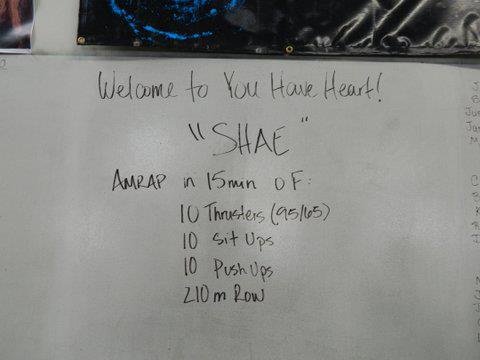 Welcome to You Have Heart!
"SHAE"
AMRAP in 15min OF:
10 Thrusters (95/65)
10 Sit Ups
10 Push Ups
210m Row